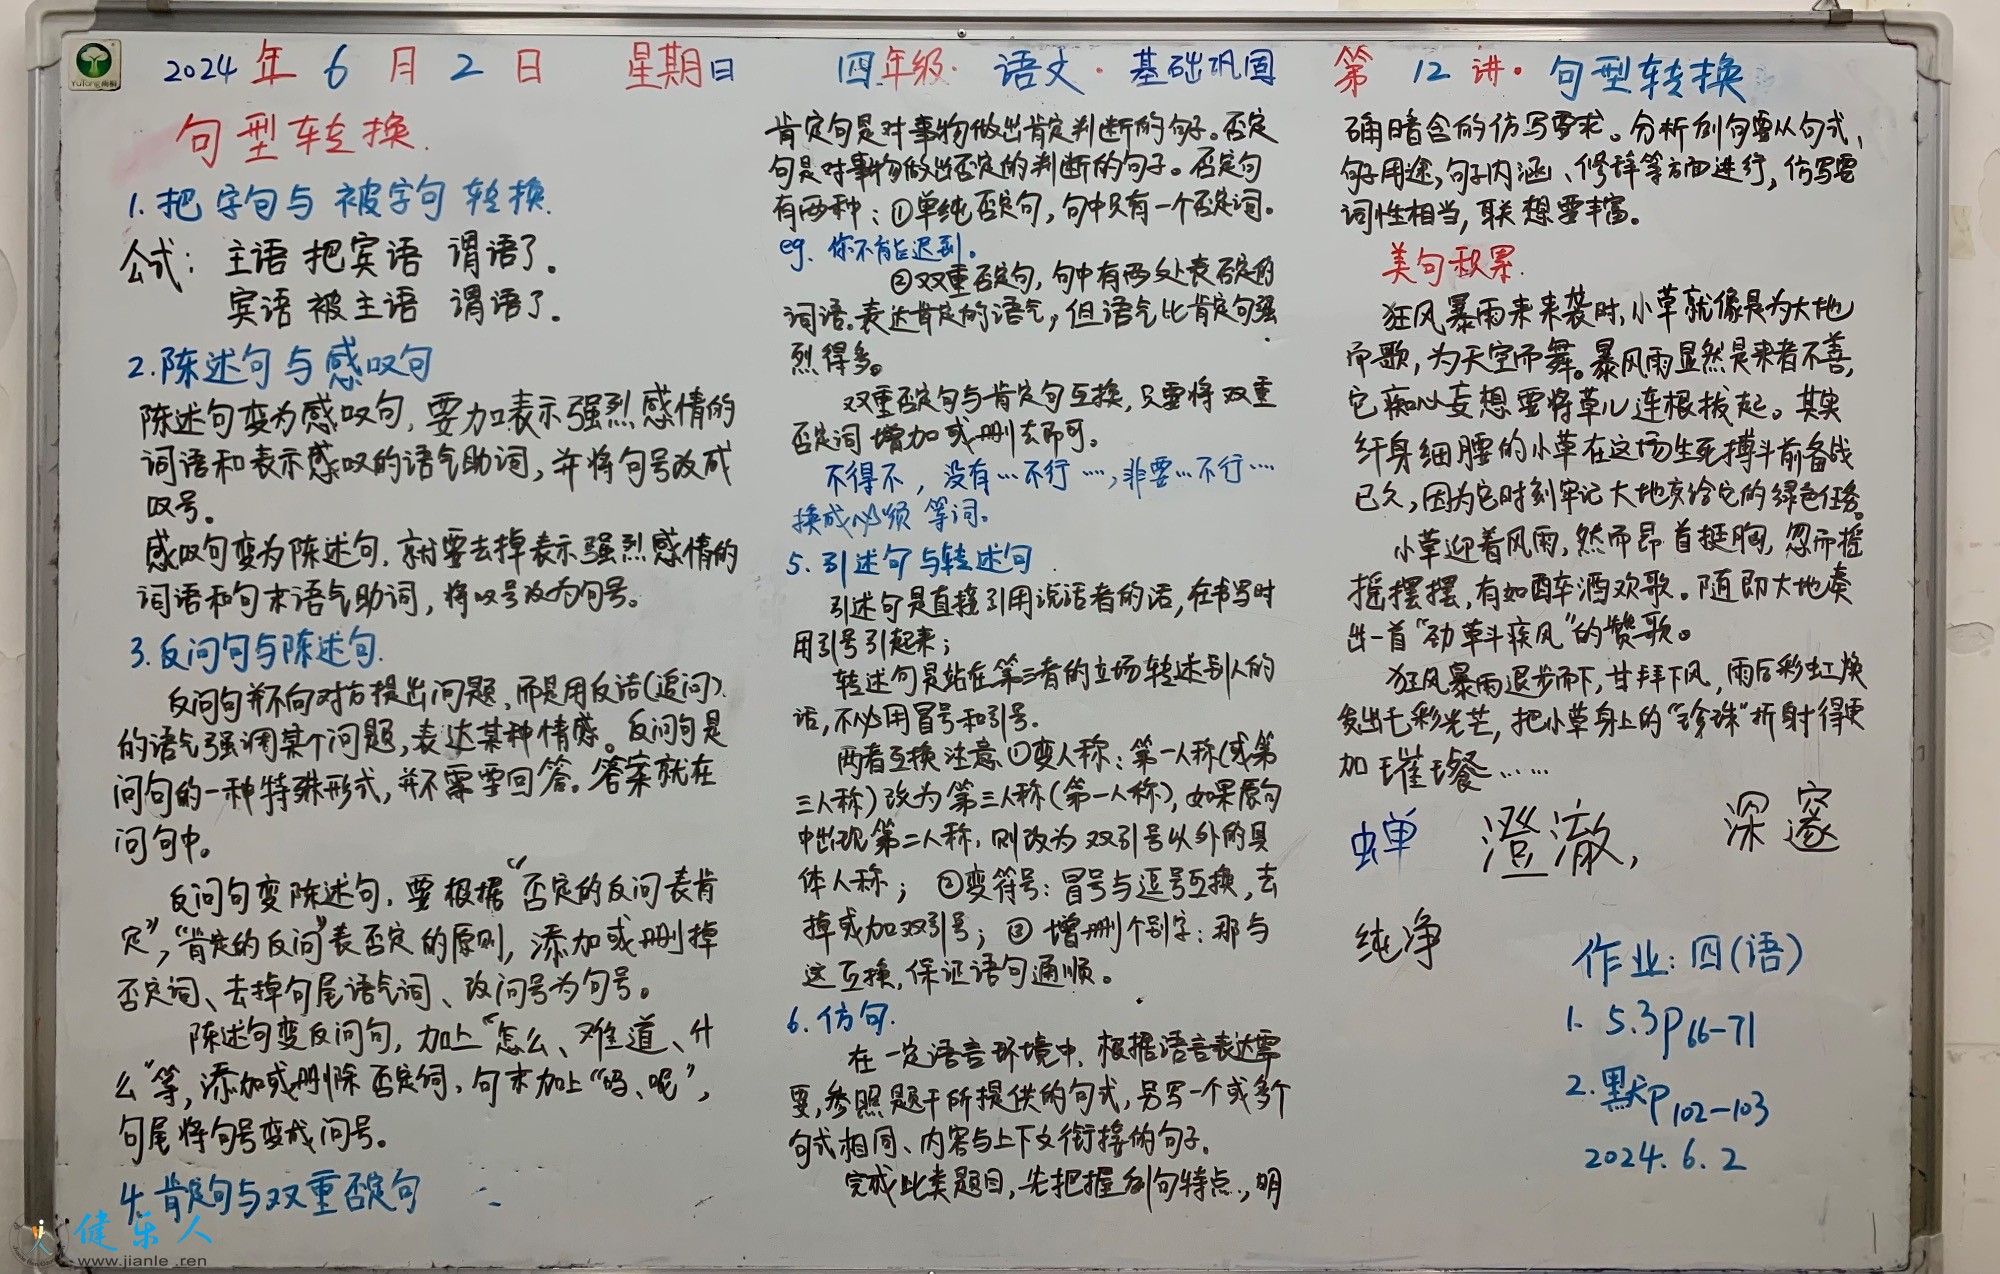 2024年6月2日 星期日 四年级·语文·基础巩固 第12讲·句型转换
句型转换.
1.把字句与被字句转换.
公式：主语把宾语 谓语了。
宾语被主语 谓语了。
2.陈述句与感叹句
陈述句变为感叹句，要加表示强烈感情的
词语和表示感叹的语气助词，并将句号改成
叹号。
感叹句变为陈述句，就要去掉表示强烈感情的
词语和句末语气助词，将叹号改为句号。
3.反问句与陈述句.
反问句并不向对方提出问题，而是用反诘(追问)
的语气强调某个问题，表达某种情感。反问句是
问句的一种特殊形式，并不需要回答。答案就在
问句中。
反问句变陈述句，要根据“否定的反问表肯
定”，“肯定的反问”表否定的原则，添加或删掉
否定词、去掉句尾语气词、改问号为句号。
陈述句变反问句，加上“怎么、难道、什
么”等，添加或删除否定词，句末加上“吗、呢”，
句尾将句号变成问号。
4.肯定句与双重否定句
肯定句是对事物做出肯定判断的句子。否定
句是对事物做出否定的判断的句子。否定句
有两种：①单纯否定句，句中只有一个否定词。
eg. 你不能迟到。
②双重否定句，句中有两处表否定的
词语。表达肯定的语气，但语气比肯定句强
烈得多。
双重否定句与肯定句互换，只要将双重
否定词增加或删去即可。
不得不，没有…不行…，非要…不行…
换成必须等词。
5.引述句与转述句
引述句是直接引用说话者的话，在书写时
用引号引起来；
转述句是站在第三者的立场转述别人的
话，不必用冒号和引号。
两者互换注意①变人称：第一人称(或第
三人称)改为第三人称(第一人称)，如果原句
中出现第二人称，则改为双引号以外的具
体人称；②变符号：冒号与逗号互换，去
掉或加双引号；③增删个别字：那与
这互换，保证语句通顺。
6.仿句.
在一定语言环境中，根据语言表达需
要，参照题干所提供的句式，另写一个或多个
句式相同、内容与上下文衔接的句子。
完成此类题目，先把握例句特点，明
确暗含的仿写要求。分析例句要从句式、
句子用途，句子内涵、修辞等方面进行，仿写要
词性相当，联想要丰富。
美句积累.
狂风暴雨来来袭时，小草就像是为大地
而歌，为天空而舞。暴风雨显然是来者不善，
它痴心妄想要将草儿连根拔起。其实
纤身细腰的小草在这场生死搏斗前备战
已久，因为它时刻牢记大地交给它的绿色任务。
小草迎着风雨，然而昂首挺胸，忽而摇
摇摆摆，有如醉酒欢歌。随即大地奏
出一首“劲草斗疾风”的赞歌。
狂风暴雨退步而下，甘拜下风，雨后彩虹焕
发出七彩光芒，把小草身上的“珍珠”折射得更
加璀璨……
蝉 澄澈， 深邃
纯净
作业：四(语)
1. 5.3P66-71
2.默P102-103
2024.6.2
健乐人
www.jianle.ren